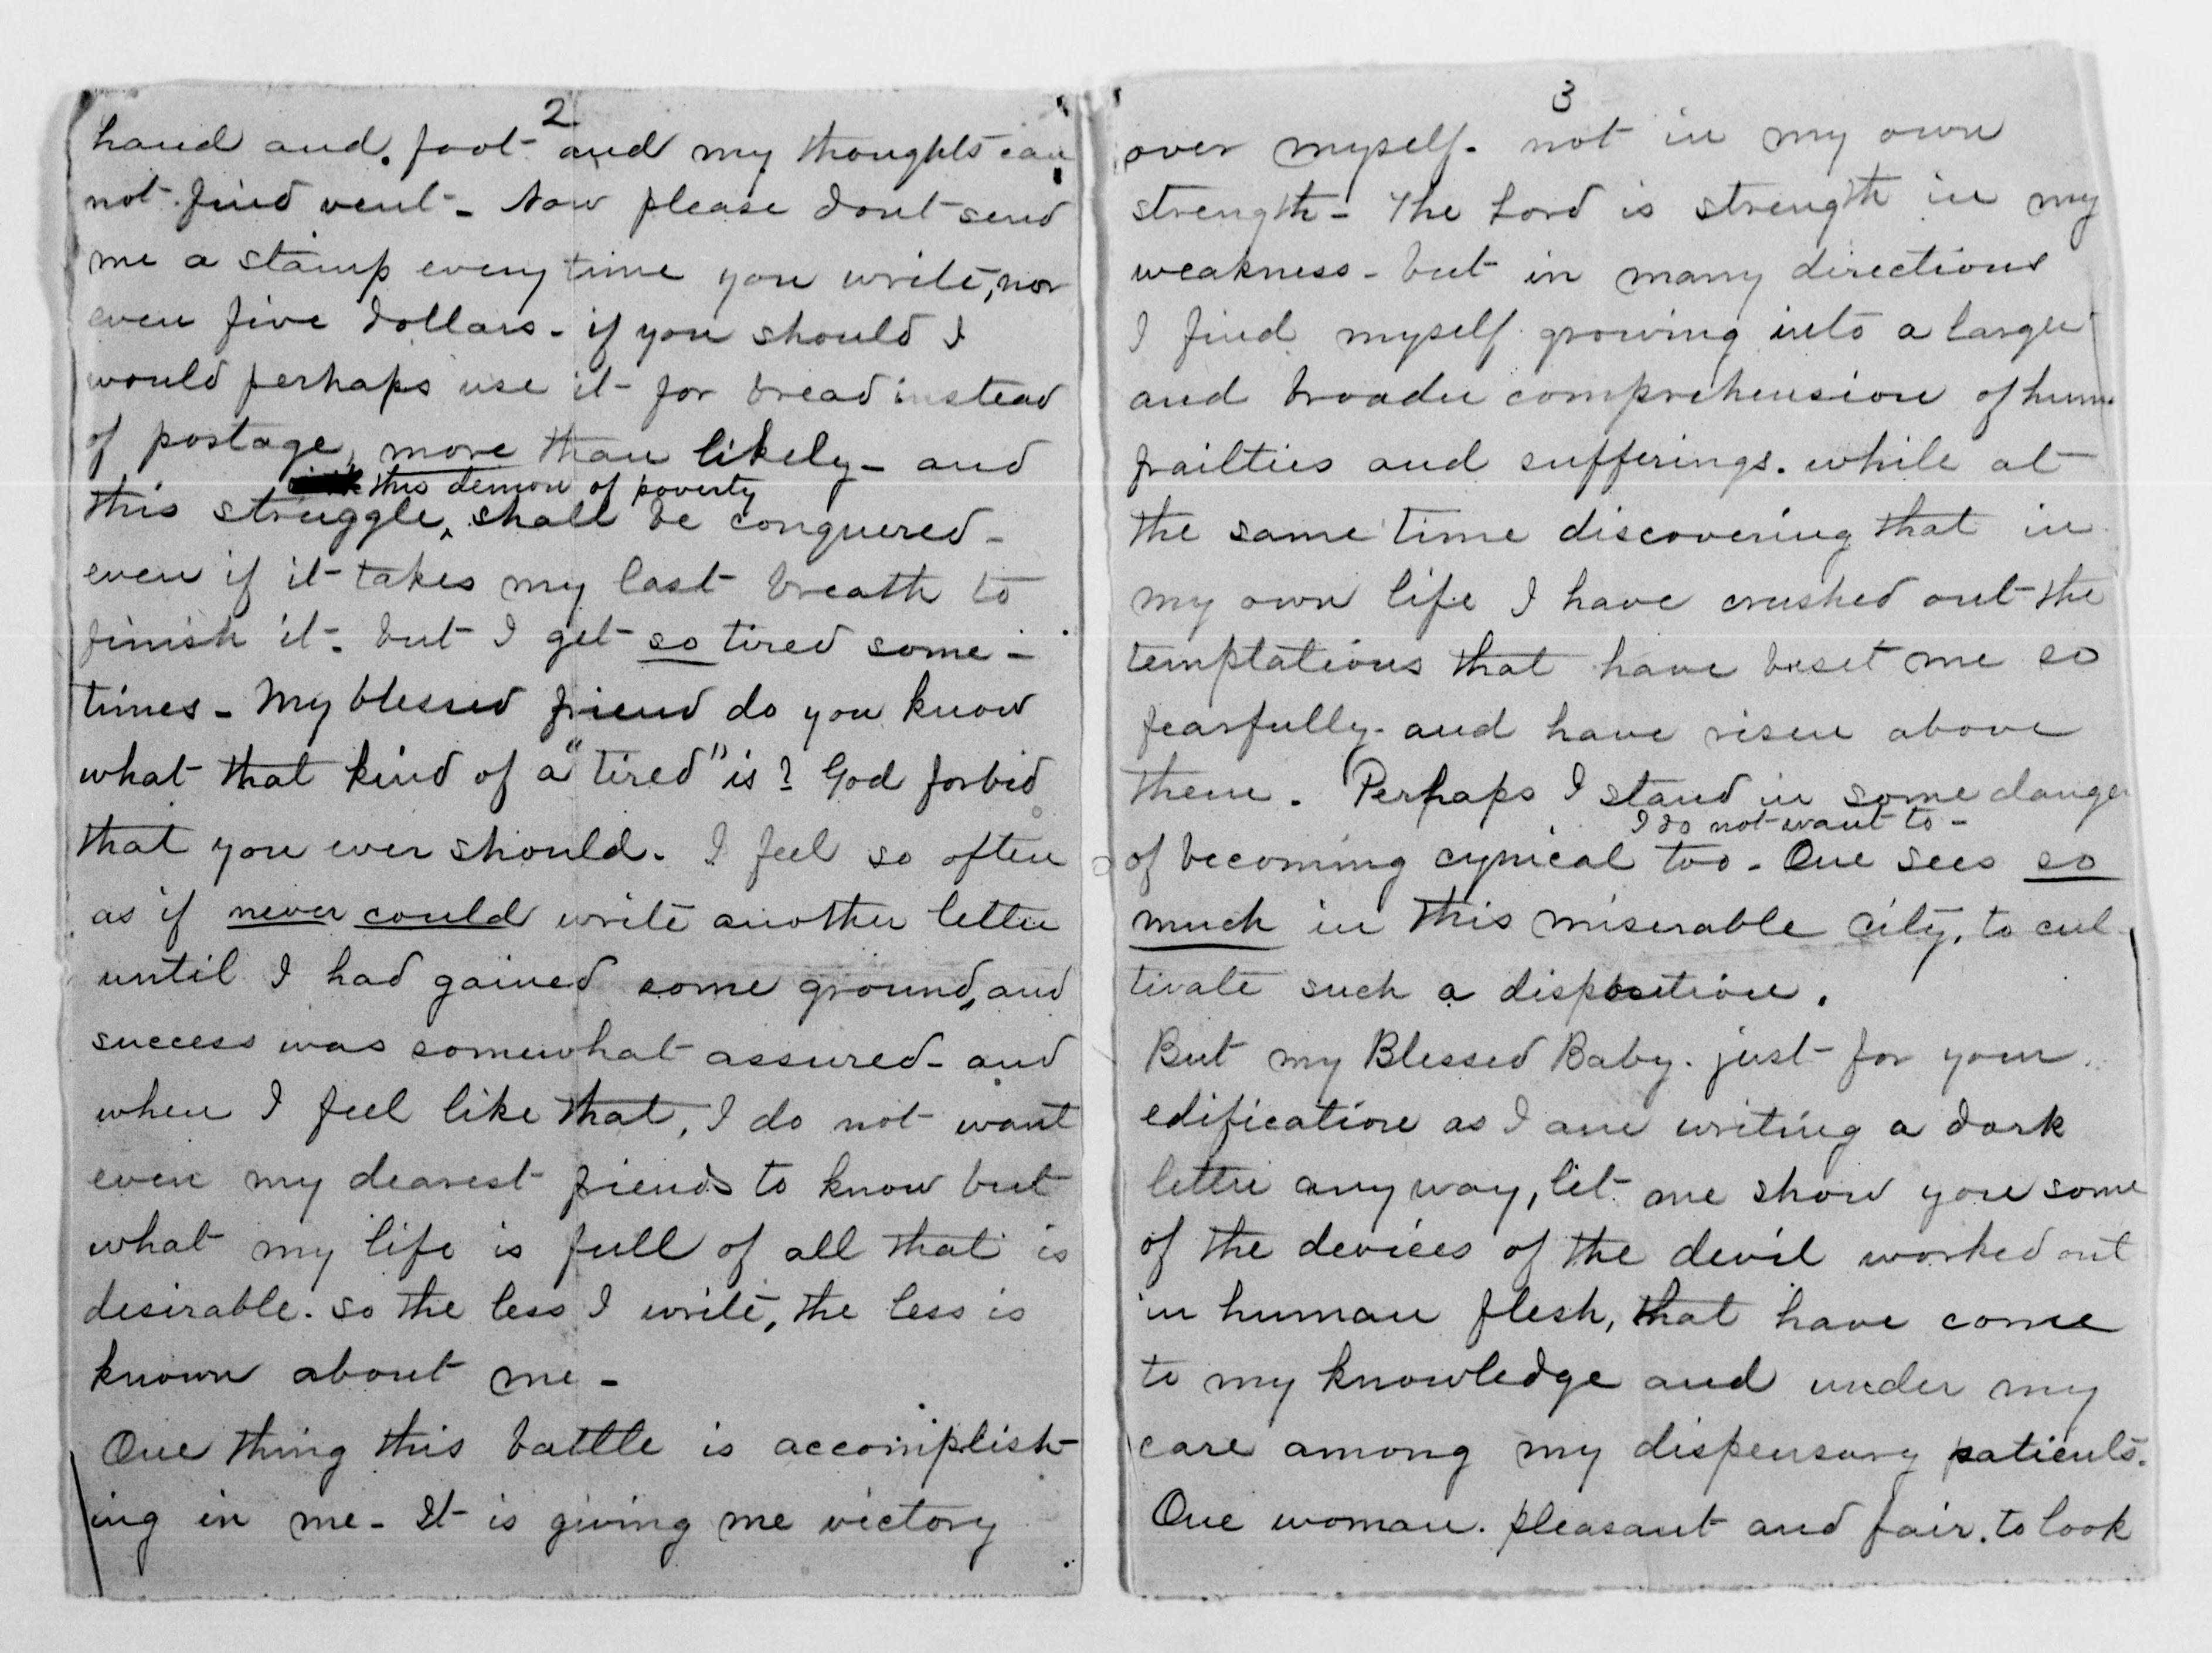 2
hand and. foot and my thoughts can
not find vent - Now please dont send
me a stamp every time you write, nor
even five dollars - if you should I
would perhaps use it for bread instead
of postage, more than likely - and
this demon of poverty
this struggle, ^ shall be conquered -
even if it takes my last breath to
finish it - but I get so tired some -
times - My blessed friend do you know
what that kind of a "tired" is? God forbid
that you ever should. I feel so often
as if never could write another letter
until I had gained some ground, and
success was somewhat assured - and
when I feel like that, I do not want
even my dearest friends to know but
what my life is full of all that is
desirable. so the less I write, the less is
known about me -
One thing this battle is accomplish-
ing in me - It is giving me victory
3
over myself. not in my own
strength - The Lord is strength in my
weakness - but in many directions
I find myself growing into a larger
and broader comprehension of hum
frailties and sufferings. while at
the same time discovering that in
my own life I have crushed out the
temptations that have beset me so
fearfully - and have risen above
them. Perhaps I stand in some danger
I do not want to -
of becoming cynical too - One sees so
much in this miserable city, to cul-
tivate such a disposition.
But my Blessed Baby. just for your
edification as I am writing a dark
letter any way, let me show you some
of the devices of the devil worked out
in human flesh, that have come
to my knowledge and under my
care among my dispensary patients.
One woman. pleasant and fair. to look